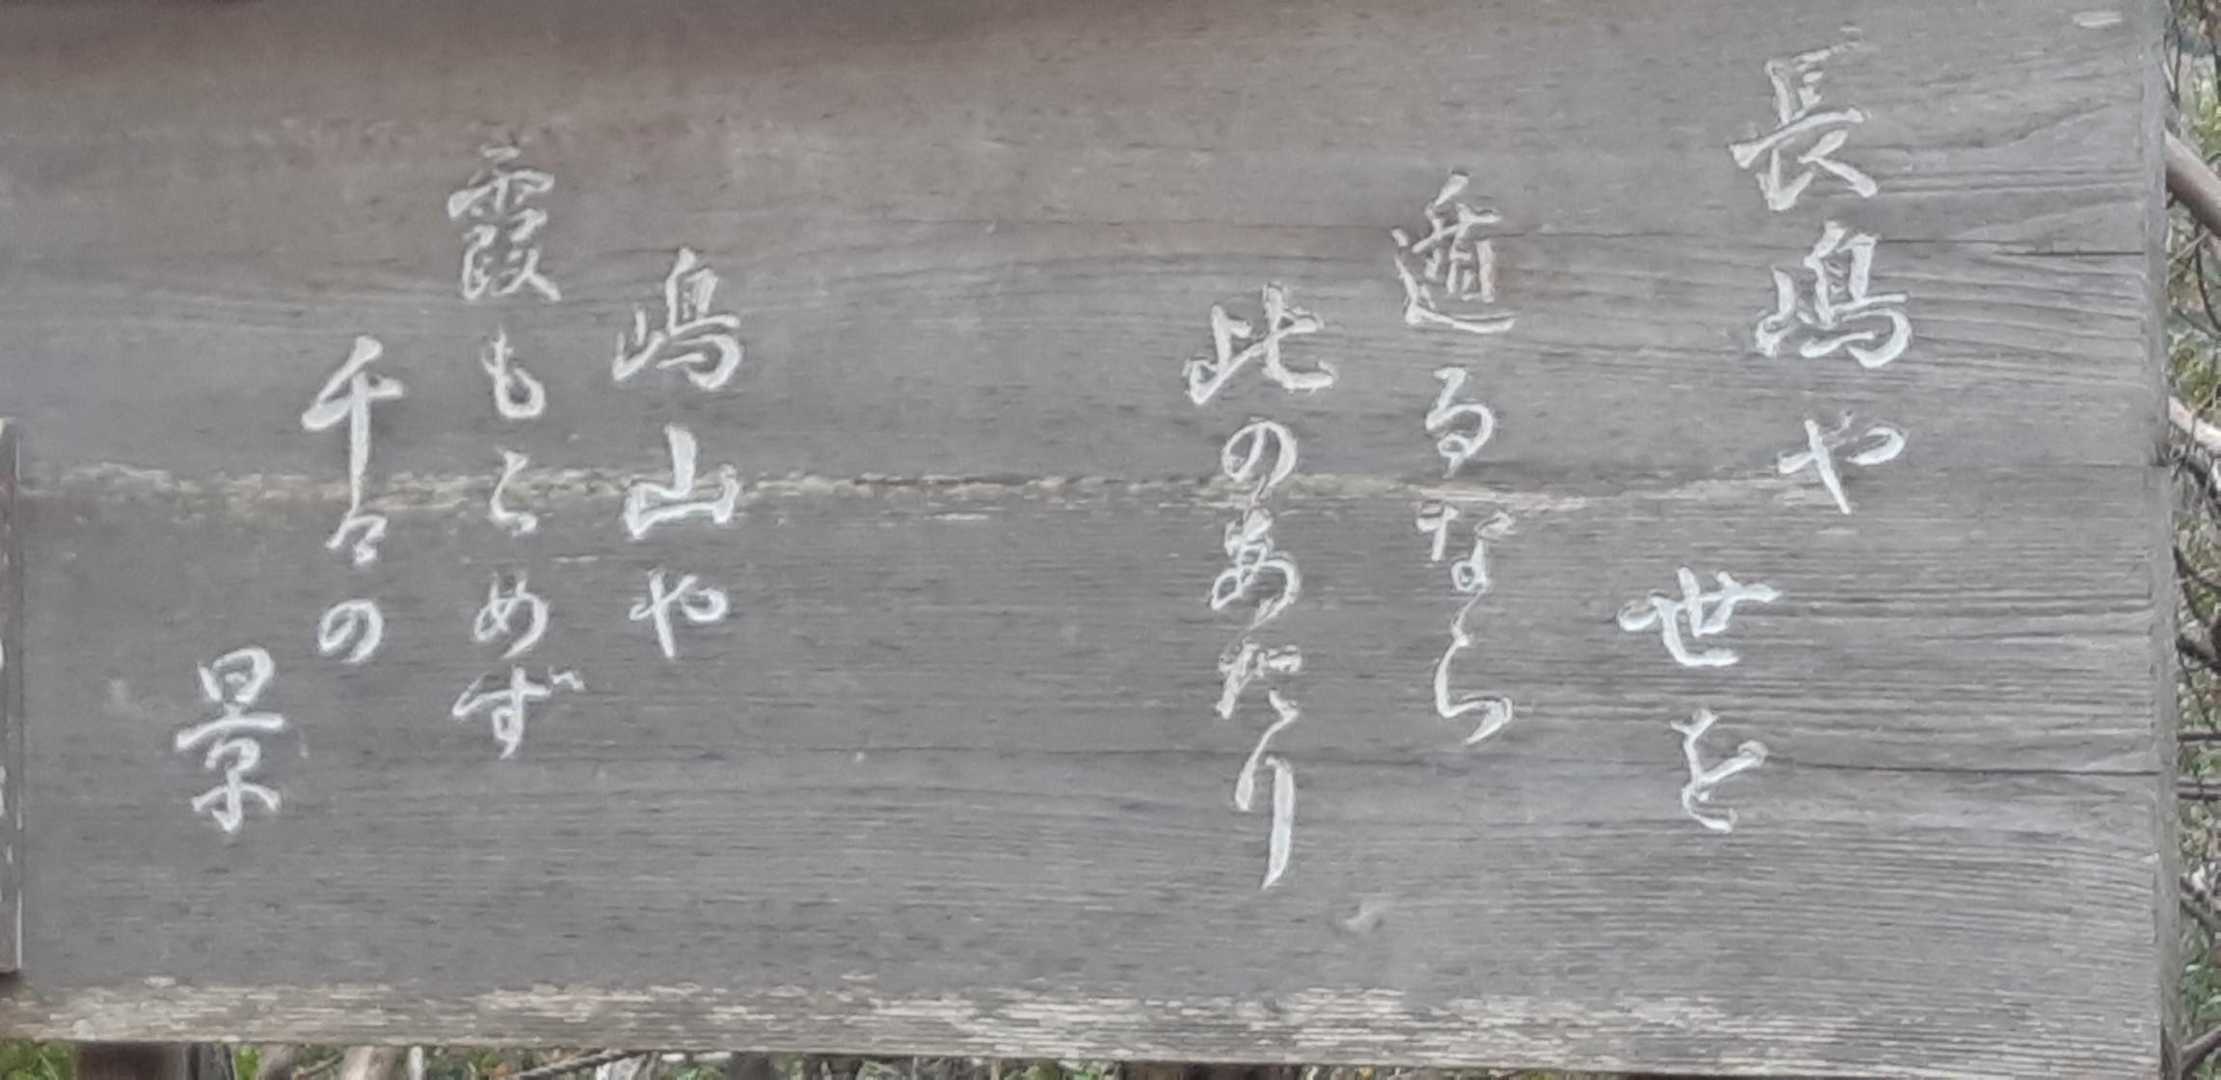 長嶋や
世を
遁るなら
此のあたり
嶋山や
霞もこめず
千々の
景